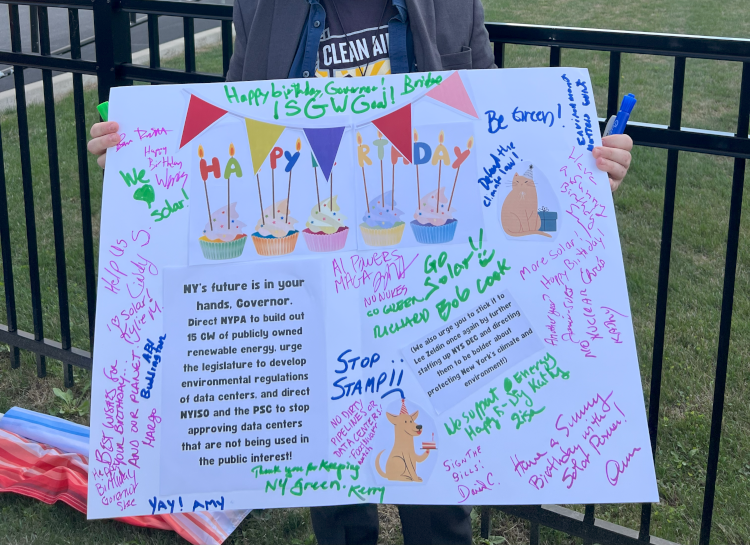 CLEAN AIR
Happy birthday, Governor!
15 GW Goal!
Bridge
HAPPY BIRTHDAY
Be Green!
Defend the
climate law!
Happy
Birthday
We
Solar!
Help Us
Solar
Cindy S.
AL POWERS
MAGA
NO NUKES
GO GREEN
RICHARD
GO
Solar!!
Bob Cook
More Solar!
Happy Birthday
NO NUCLEAR
KATHY
NY's future is in your
hands, Governor.
Direct NYPA to build out
15 GW of publicly owned
renewable energy, urge
the legislature to develop
environmental regulations
of data centers, and direct
NYISO and the PSC to stop
approving data centers
that are not being used in
the public interest!
(We also urge you to stick it to
Lee Zeldin once again by further
staffing up NYS DEC and directing
them to be bolder about
protecting New York's climate and
environment!)
STOP
STAMP!!
NO DIRTY
PIPELINES OR
DATA CENTERS
with
No support Energy
Happy B. Day Kathy
BEST WISHES for
YOUR BIRTHDAY...
AND OUR PLANET
Margo
ABI
Buddington
Happy
Birthday
Governor
SIGN THE
BILLS!
David C.
Have a Sunny
Birthday with
Solar Power!
Ann
Thank you for Keeping
NY Green. Kerry
YAY! AMY